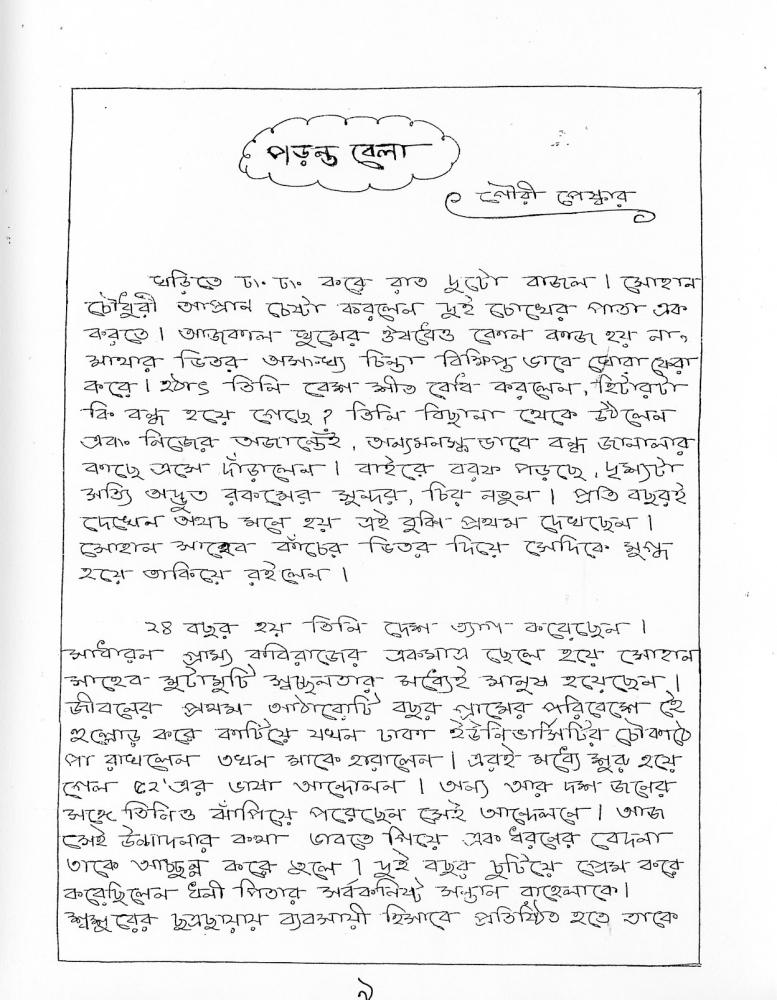 পড়ন্ত বেলা
গৌরী পেস্কার
ঘড়িতে ঢা. ঢা. করে রাত দুটো বাজল। সোহান
চৌধুরী আপ্রান চেষ্টা করলেন দুই চোখের পাতা এক
করতে। আজকাল ঘুমের ঔষধেও কোন কাজ হয় না,
মাথার ভিতর অসংখ্য চিন্তা বিক্ষিপ্ত ভাবে ঘোরা ফেরা
করে। হঠাৎ তিনি বেশ শীত বোধ করলেন, হিটারটা
কি বন্ধ হয়ে গেছে? তিনি বিছানা থেকে উঠলেন
এবং নিজের অজান্তেই, অন্যমনস্ক ভাবে বন্ধ জানালার
কাছে এসে দাঁড়ালেন। বাইরে বরফ পড়ছে, দৃশ্যটা
সত্যি অদ্ভুত রকমের সুন্দর, চির নতুন। প্রতি বছরই
দেখেন অথচ মনে হয় এই বুঝি প্রথম দেখছেন।
সোহান সাহেব কাঁচের ভিতর দিয়ে সেদিকে মুগ্ধ
হয়ে তাকিয়ে রইলেন।
২৪ বছর হয় তিনি দেশ ত্যাগ করেছেন।
সাধারন গ্রাম্য কবিরাজের একমাত্র ছেলে হয়ে সোহান
সাহেব মুটামুটি স্বচ্ছলতার মধ্যেই মানুষ হয়েছেন।
জীবনের প্রথম আঠারোটি বছর গ্রামের পরিবেশে হৈ
হুল্লোড় করে কাটিয়ে যখন ঢাকা ইউনিভার্সিটির চৌকাঠে
পা রাখলেন তখন মাকে হারালেন। এরই মধ্যে শুরু হয়ে
গেল ৫২'এর ভাষা আন্দোলন। অন্য আর দশ জনের
সঙ্গে তিনিও ঝাঁপিয়ে পরেছেন সেই আন্দেলনে। আজ
সেই উন্মাদনার কথা ভাবতে গিয়ে এক ধরনের বেদনা
তাকে আচ্ছন্ন করে তুলে। দুই বছর চুটিয়ে প্রেম করে
করেছিলেন ধনী পিতার সর্বকনিষ্ট সন্তান রাহেলাকে।
শ্বশুরের ছত্রছায়ায় ব্যবসায়ী হিসাবে প্রতিষ্ঠিত হতে তাকে
৯